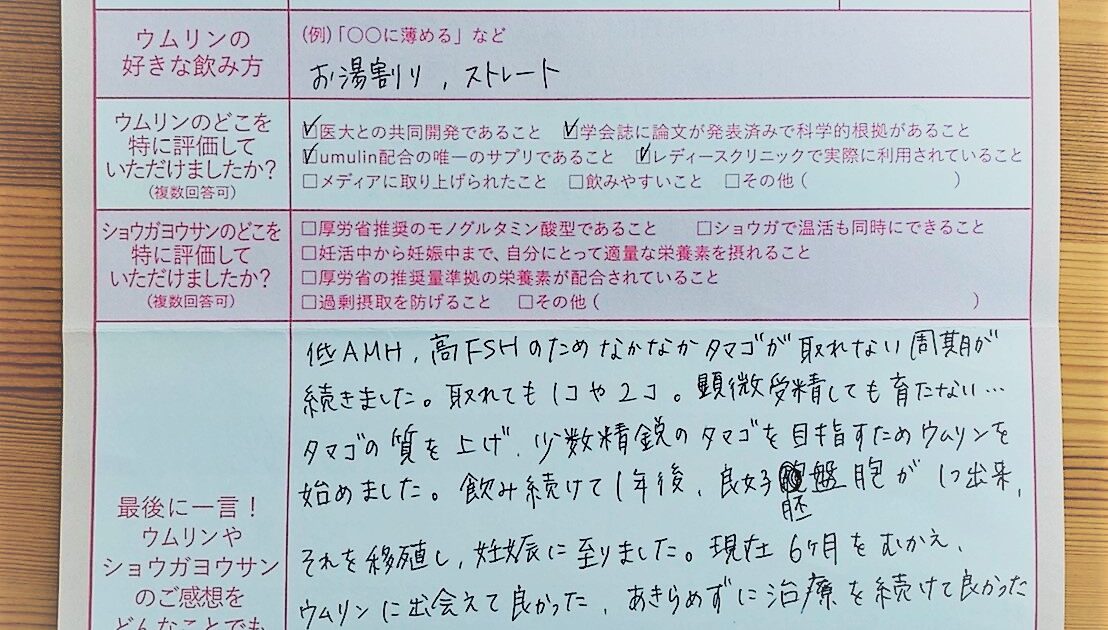 ウムリンの
好きな飲み方
(例)「〇〇に薄める」など
お湯割り, ストレート
ウムリンのどこを
特に評価して
いただけましたか?
(複数回答可)
☑医大との共同開発であること ☑学会誌に論文が発表済みで科学的根拠があること
☑umulin配合の唯一のサプリであること ☑レディースクリニックで実際に利用されていること
□メディアに取り上げられたこと □飲みやすいこと □その他( )
ショウガヨウサンのどこを
特に評価して
いただけましたか?
(複数回答可)
□厚労省推奨のモノグルタミン酸型であること □ショウガで温活も同時にできること
□妊活中から妊娠中まで、自分にとって適量な栄養素を摂れること
□厚労省の推奨量準拠の栄養素が配合されていること
□過剰摂取を防げること □その他( )
最後に一言!
ウムリンや
ショウガヨウサン
のご感想を
どんなことでも
低AMH, 高FSHのためなかなかタマゴが取れない周期が
続きました。取れても1コや2コ。顕微受精しても育たない…
タマゴの質を上げ、少数精鋭のタマゴを目指すためウムリンを
始めました。飲み続けて1年後、良好胚盤胞が1つ出来、
それを移殖し、妊娠に至りました。現在6ヶ月をむかえ、
ウムリンに出会えて良かった、あきらめずに治療を続けて良かった